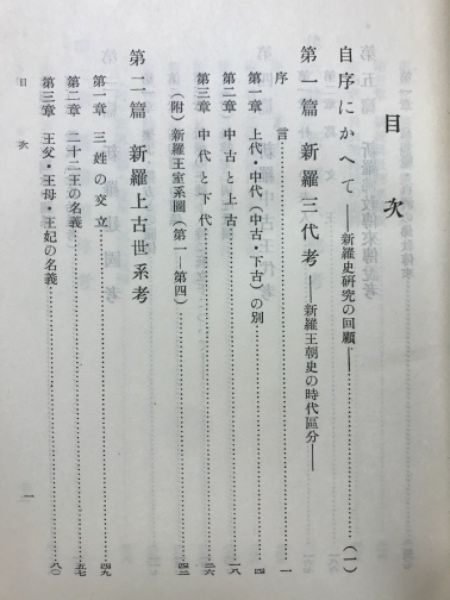 目次
自序にかへて――新羅史硏究の回顧――……(一)
第一篇 新羅三代考――新羅王朝史の時代區分――
序言……一
第一章 上代・中代(中古・下古)の別……四
第二章 中古と上古……一八
第三章 中代と下代……二六
(附)新羅王室系圖(第一―第四)……四三
第二篇 新羅上古世系考
第一章 三姓の交立……四九
第二章 二十二王の名義……五七
第三章 王父・王母・王妃の名義……八〇
目次
一